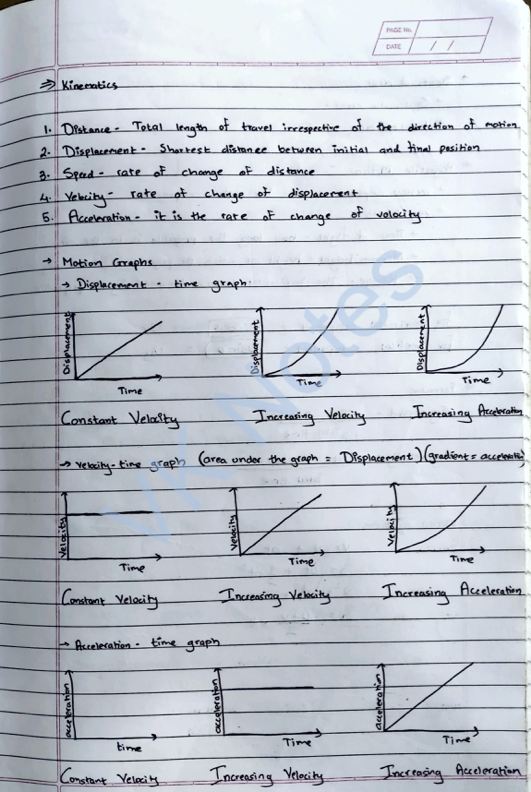 PAGE No.
DATE / /
⇒ Kinematics
1. Distance - Total length of travel irrespective of the direction of motion
2. Displacement - Shortest distance between initial and final position
3. Speed - rate of change of distance
4. Velocity - rate of change of displacement
5. Acceleration - it is the rate of change of volocity
→ Motion Graphs
→ Displacement - time graph
Displacement Displacement Displacement
Time Time Time
Constant Velocity Increasing Velocity Increasing Acceleration
→ Velocity-time graph (area under the graph = Displacement) (gradient = acceleration)
Velocity Velocity Velocity
Time Time Time
Constant Velocity Increasing Velocity Increasing Acceleration
→ Acceleration - time graph
acceleration acceleration acceleration
time Time Time
Constant Velocity Increasing Velocity Increasing Acceleration